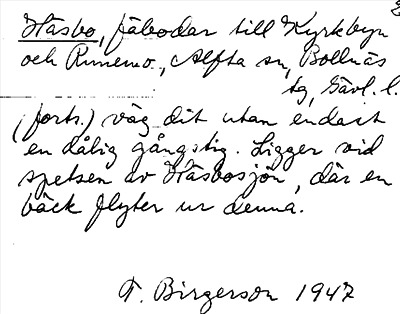 Häsbo, fäbodar till Kyrkbyn
och Runemo, Alfta sn, Bollnäs
tg, Gävl. l.
(forts.) väg dit utan endast
en dålig gångstig. Ligger vid
spetsen av Häsbosjön, där en
bäck flyter ur denna.
F. Birgerson 1947